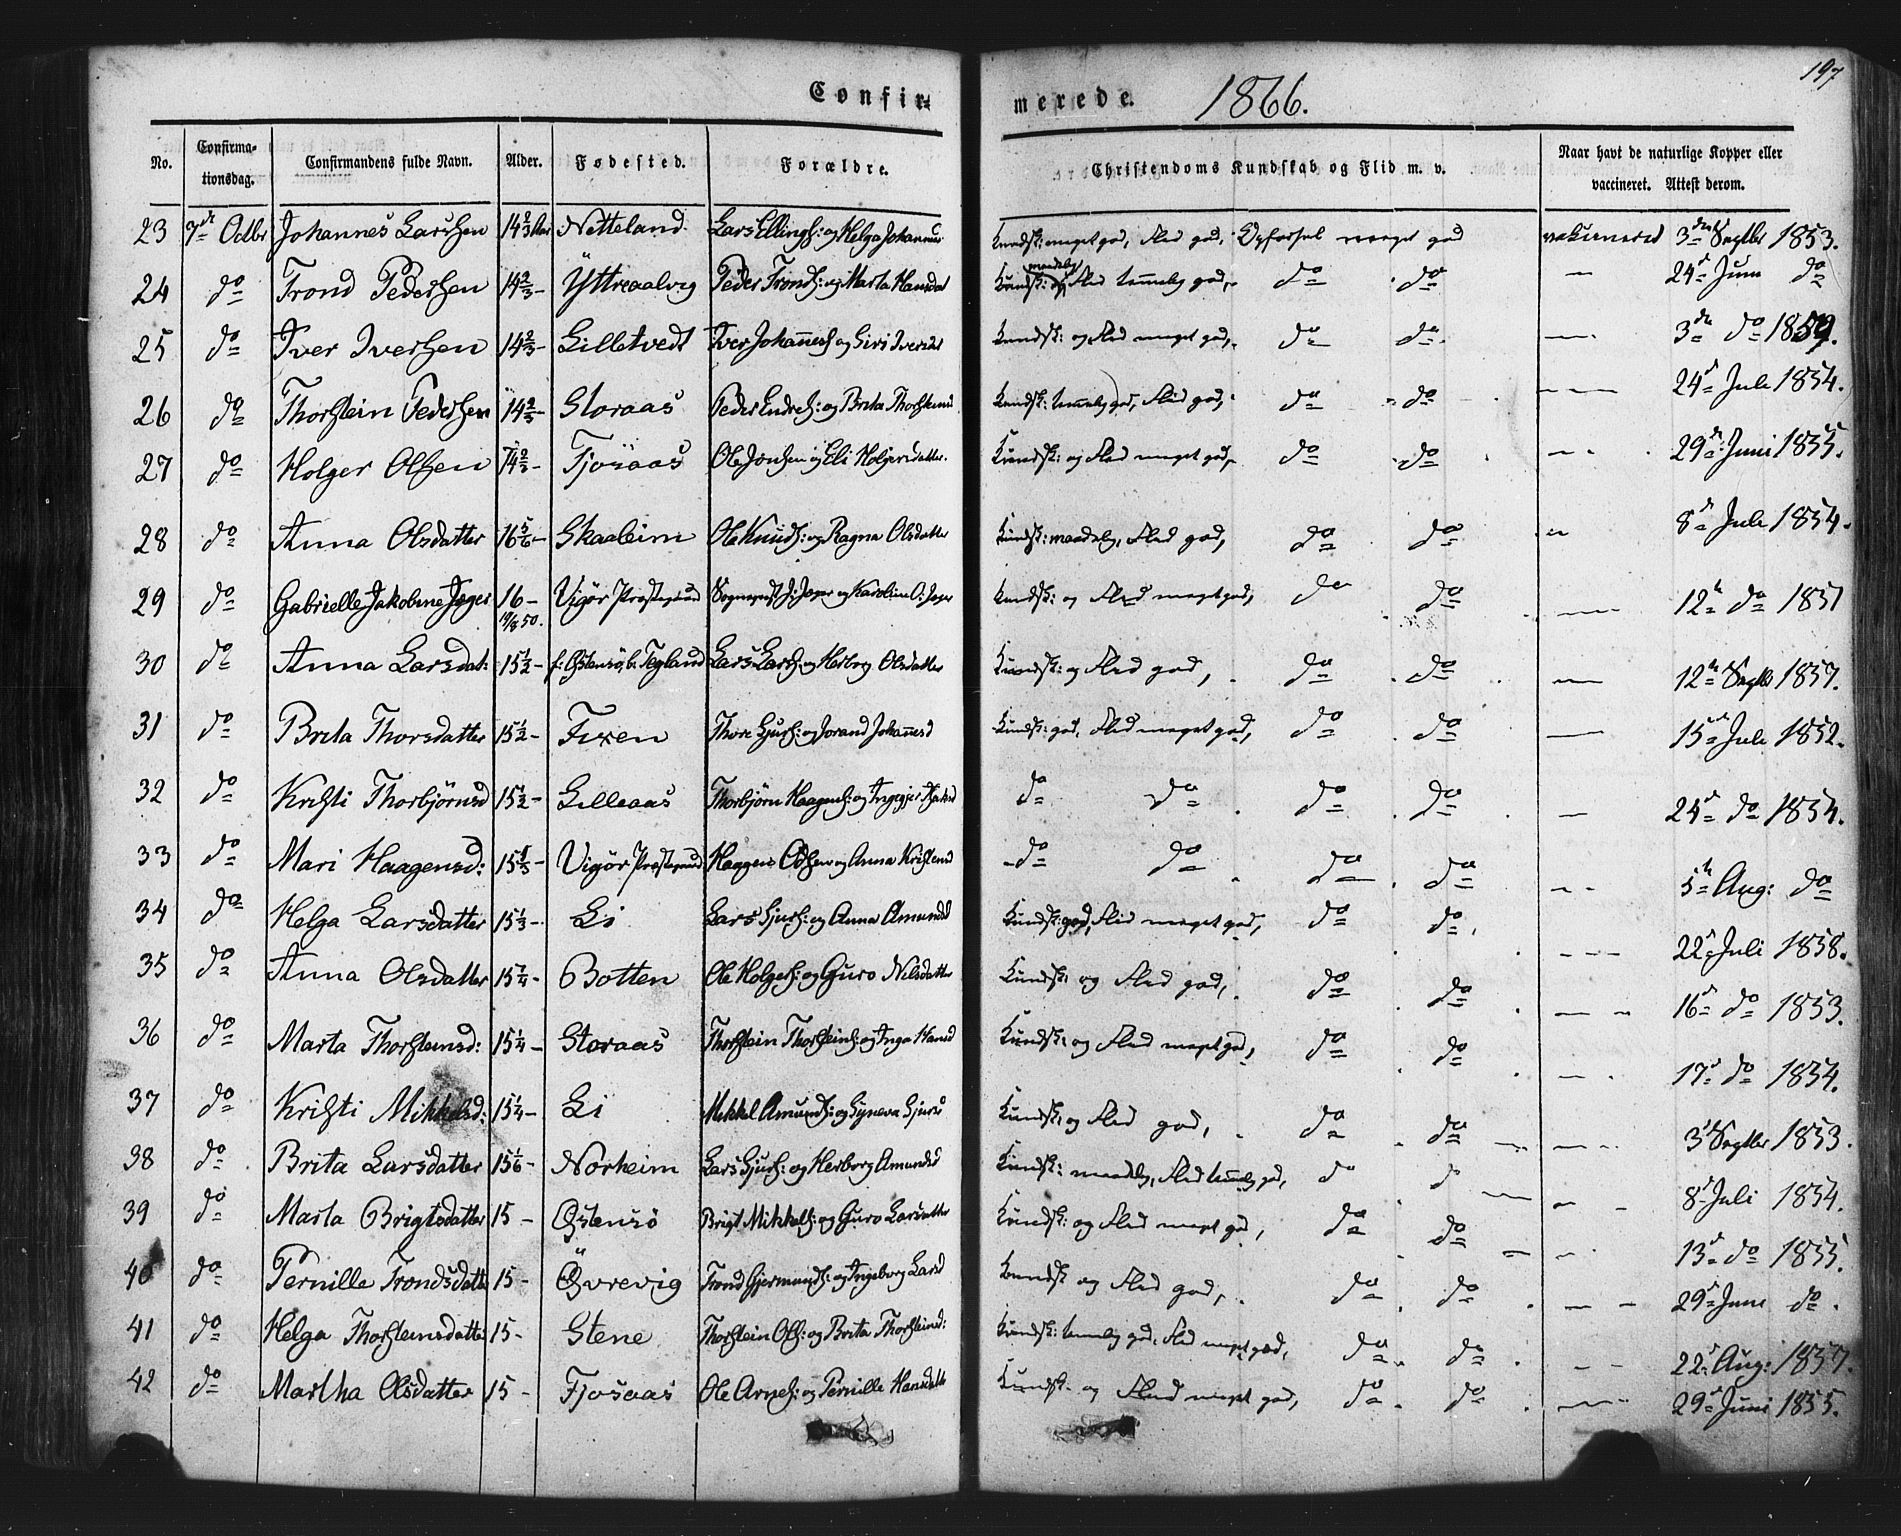 197
Confir-merede. 1866.
No. Confirma-tionsdag. Confirmandens fulde Navn. Alder. Fødested. Forældre. Christendoms Kundskab og Flid m. v. Naar havt de naturlige Kopper eller vaccineret. Attest derom.
23 7de Octbr Johannes Larssen 14 2/3 Aar Netteland Lars Ellings: og Helga Johannes Kundsk: meget god, Flid god, Opførsel meget god vakcineret 3die Septbr 1853.
24 do Trond Pederssen 14 2/3 - Yttreaalvig Peder Tronds: og Marta Hansdat Kundsk: maadelig og Flid temmelig god, do do — 24de Juni do
25 do Iver Iverssen 14 2/3 - Lilletvedt Iver Johannes og Siri Iversdat Kundsk: og Flid meget god, do do — 3die do 1859.
26 do Thorstein Pederssen 14 2/3 - Storaas Peder Endres: og Brita Thorsteins Kundsk: temmelig god, Flid god, do do — 24de Juli 1854.
27 do Holger Olssen 14 2/3 - Fjosaas Ole Jonssen og Eli Holgersdatter Kundsk: og Flid meget god, do do — 29de Juni 1855.
28 do Anna Olsdatter 16 5/6 - Skaaleim Ole Knuds: og Ragna Olsdatter Kundsk: maadelig, Flid god, do do — 8de Juli 1854.
29 do Gabrielle Jakobine Jæger 16 - 19/8 50. Vigør Præstegaard Sogneprest J: Jæger og Karoline O: Jæger Kundsk: og Flid meget god, do do — 12te do 1851
30 do Anna Larsdat: 15 1/2 - f: Østensö, b: Tegland Lars Lars: og Herborg Olsdatter Kundsk: og Flid god, do do — 12te Septbr 1857.
31 do Brita Thorsdatter 15 1/2 - Fixen Thore Sjurs: og Jorand Johannesd Kundsk: god, Flid meget god, do do — 15de Juli 1852.
32 do Kristi Thorbjörnsd 15 1/2 - Lilleaas Thorbjörn Haagens: og Ingegjer do do do do — 24de do 1854.
33 do Mari Haagensd: 15 1/3 - Vigør Præstegaard Haagens Olssen og Anna Kristensd do do do do — 5te Aug: do
34 do Helga Larsdatter 15 1/3 - Li Lars Sjurs: og Anna Amundsd Kundsk: god, Flid meget god, do do — 22de Juli 1858.
35 do Anna Olsdatter 15 1/4 - Botten Ole Holgers: og Guro Nilsdatter Kundsk: og Flid god, do do — 16de do 1853.
36 do Marta Thorsteinsd: 15 1/4 - Storaas Thorstein Thorsteins: og Inga Hansd Kundsk: og Flid meget god, do do — 17de do 1854.
37 do Kristi Mikkelsd: 15 1/4 - Li Mikkel Amunds: og Syneva Sjursd Kundsk: og Flid god, do do — 3die Septbr 1853.
38 do Brita Larsdatter 15 1/6 - Norheim Lars Sjurs: og Herborg Amundsd Kundsk: maadelig, Flid temmelig god, do do — 8de Juli 1854.
39 do Marta Brigtsdatter 15 - Østensö Brigt Mikkels: og Guro Larsdatter Kundsk: og Flid meget god, do do — 13de do 1855.
40 do Pernille Trondsdatter 15 - Øvrevig Trond Gjermunds: og Ingeborg Larsd Kundsk og Flid god, do do — 29de Juni do.
41 do Helga Thorsteinsdatter 15 - Stene Thorstein Ols: og Brita Thorsteinsd: Kundsk: temmelig god, Flid meget god, do do — 22de Aug: 1857.
42 do Martha Olsdatter 15 - Fjosaas Ole Arnes: og Pernille Hansdatt Kundsk: og Flid meget god, do do — 29de Juni 1855.